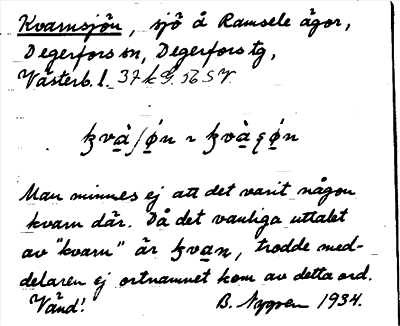 Kvarnsjön, sjö å Ramsele ägor,
Degerfors sn, Degerfors tg,
Västerb. l. 37 k G. 56 SV.
ꜧvà̱ʃǿ̱n ~ ꜧvà̱ʂǿ̱n
Man minnes ej att det varit någon
kvarn där. Då det vanliga uttalet
av "kvarn" är ꜧva̱n, trodde med-
delaren ej ortnamnet kom av detta ord.
Vänd! B. Nygren 1934.